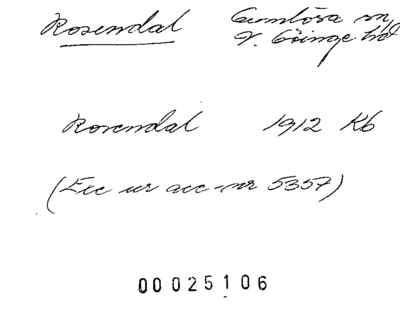 Rosendal Gumlösa sn,
V. Göinge hd
Rosendal 1912 Kb
(Exc ur acc-nr 5357)
00025106